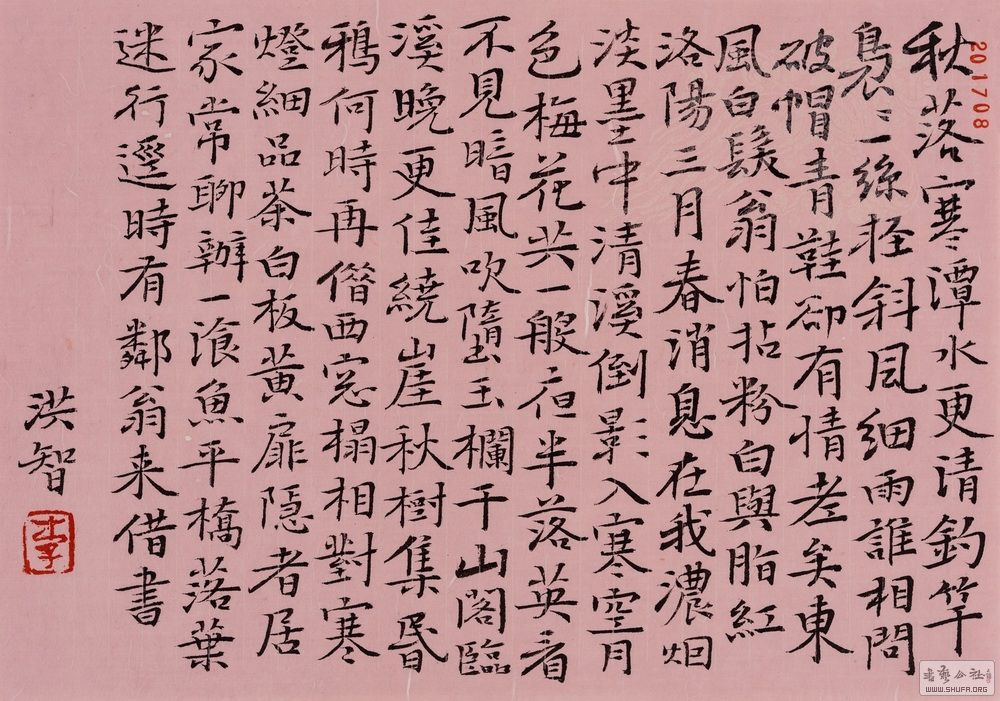 秋落寒潭水更清釣竿
裊裊一絲輕斜風細雨誰相問
破帽青鞋卻有情老矣東
風白髮翁怕拈粉白與脂紅
洛陽三月春消息在我濃烟
淡墨中清溪倒影入寒空月
色梅花共一般夜半落英看
不見暗風吹墮玉欄干山閣臨
溪晚更佳繞崖秋樹集昏
鴉何時再借西窓榻相對寒
燈細品茶白板黃扉隱者居
家常聊辦一湌魚平橋落葉
迷行逕時有鄰翁来借書
洪智
李
201708
書藝公社
WWW.SHUFA.ORG